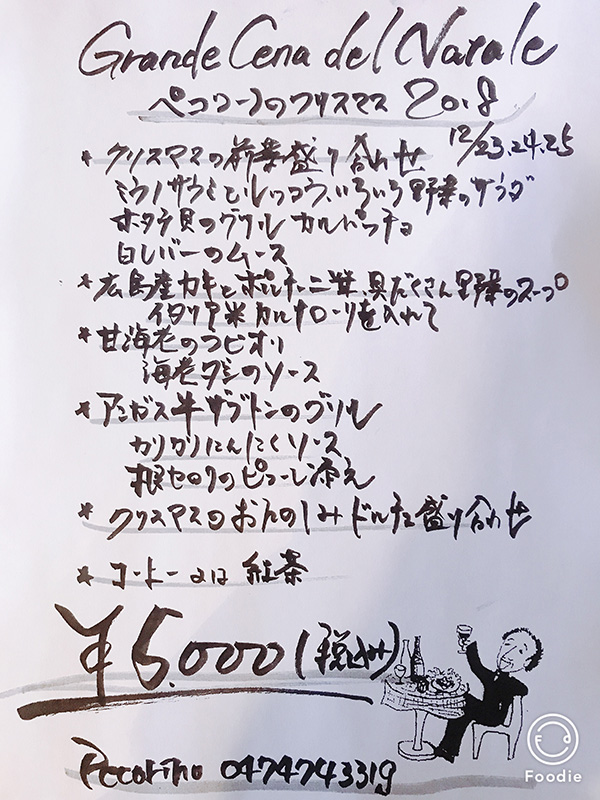 Grande Cena del Natale
ペコリーノのクリスマス 2018
12/23.24.25
* クリスマスの前菜盛り合わせ
ミラノサラミと、いろいろ野菜のサラダ
ホタテ貝のグリル カルパッチョ
白レバーのムース
* 広島産カキとポルチーニ茸、具だくさん野菜のスープ
イタリア米カルナローリを入れて
* 甘海老のラビオリ
海老ダシのソース
* アンガス牛ザブトンのグリル
カリカリにんにくソース
根セロリのピューレ添え
* クリスマスのおたのしみドルチェ盛り合わせ
* コーヒー又は紅茶
¥5.000(税込み)
Pecorino 0474743319
Foodie